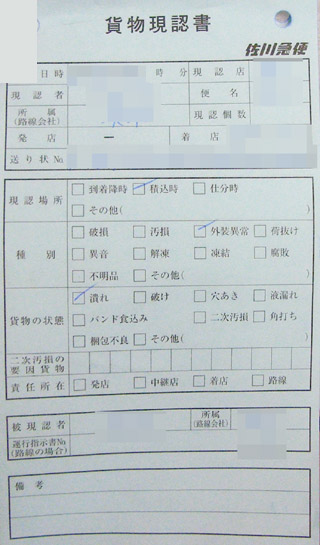 貨物現認書
佐川急便
日時 時 分 現認店
現認者 便名
所属(路線会社) 現認個数
発店 ー 着店
送り状No.
現認場所 □到着降時 □積込時 □仕分時
□その他( )
種別 □破損 □汚損 □外装異常 □荷抜け
□異音 □解凍 □凍結 □腐敗
□不明品 □その他( )
貨物の状態 □潰れ □破け □穴あき □液漏れ
□バンド食込み □二次汚損 □角打ち
□梱包不良 □その他( )
二次汚損の要因貨物
責任所在 □発店 □中継店 □着店 □路線
被現認者 所属(路線会社)
運行指示書No.(路線の場合)
備考